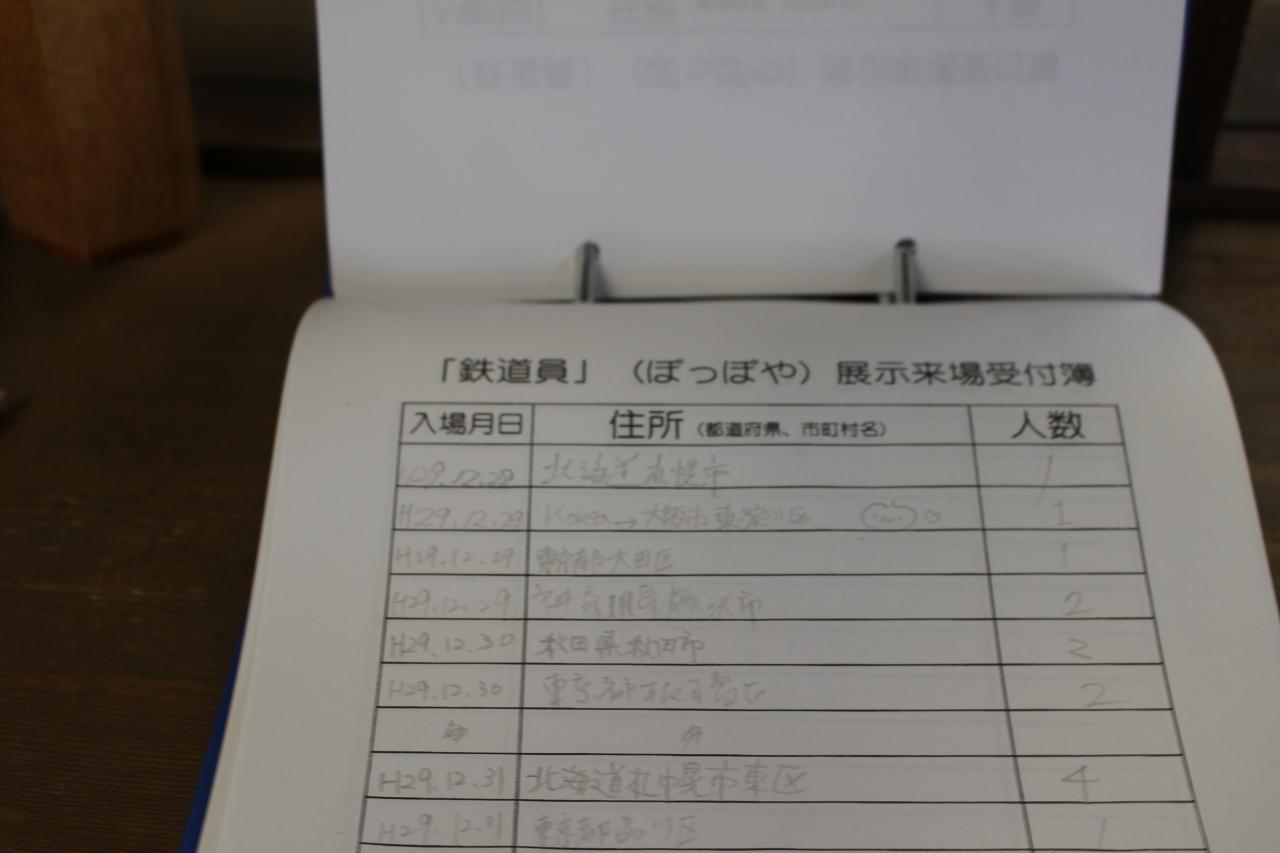 「鉄道員」（ぽっぽや）展示来場受付簿
入場月日 住所（都道府県、市町村名） 人数
H29.12.28 北海道札幌市 1
H29.12.29 Korea→大阪市東淀川区 1
H29.12.29 東京都大田区 1
H29.12.29 神奈川県藤沢市 2
H29.12.30 秋田県秋田市 2
H29.12.30 東京都 2
H29.12.31 北海道札幌市東区 4
H29.12.31 東京都品川区 1